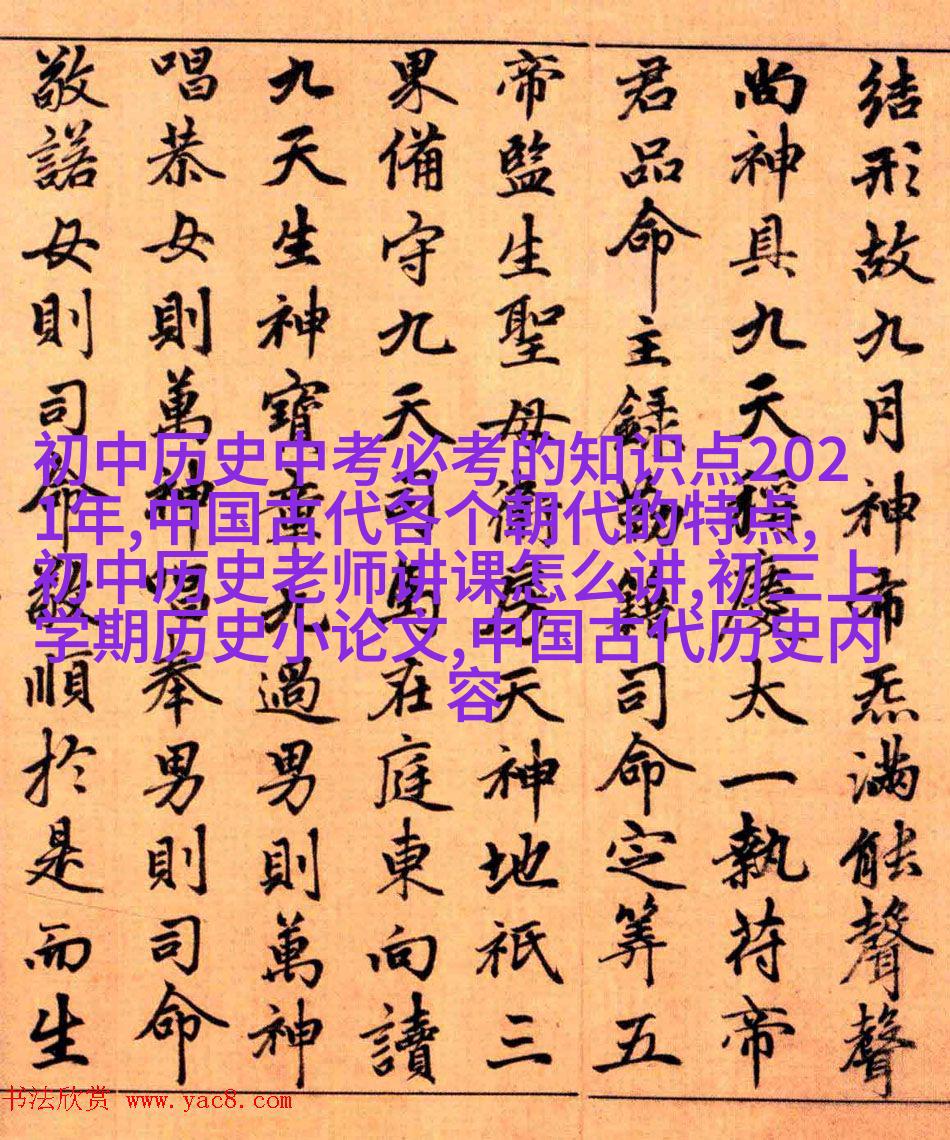 結形故九月神布炁滿能聲聲
尚神具九天稱慶太一執符帝
君品命主録勒籍司命定筭五
帝監生聖母衛房天神地祇三
果備守九天司馬在庭東向讀
九天生神寶章九過男則萬神
唱恭女則萬神唱奉男則司命
敬諾女則司命敬順於是而生
初中历史中考必考的知识点202
1年,中国古代各个朝代的特点,
初中历史老师讲课怎么讲,初三上
学期历史小论文,中国古代历史内
容
书法欣赏 www.yac8.com